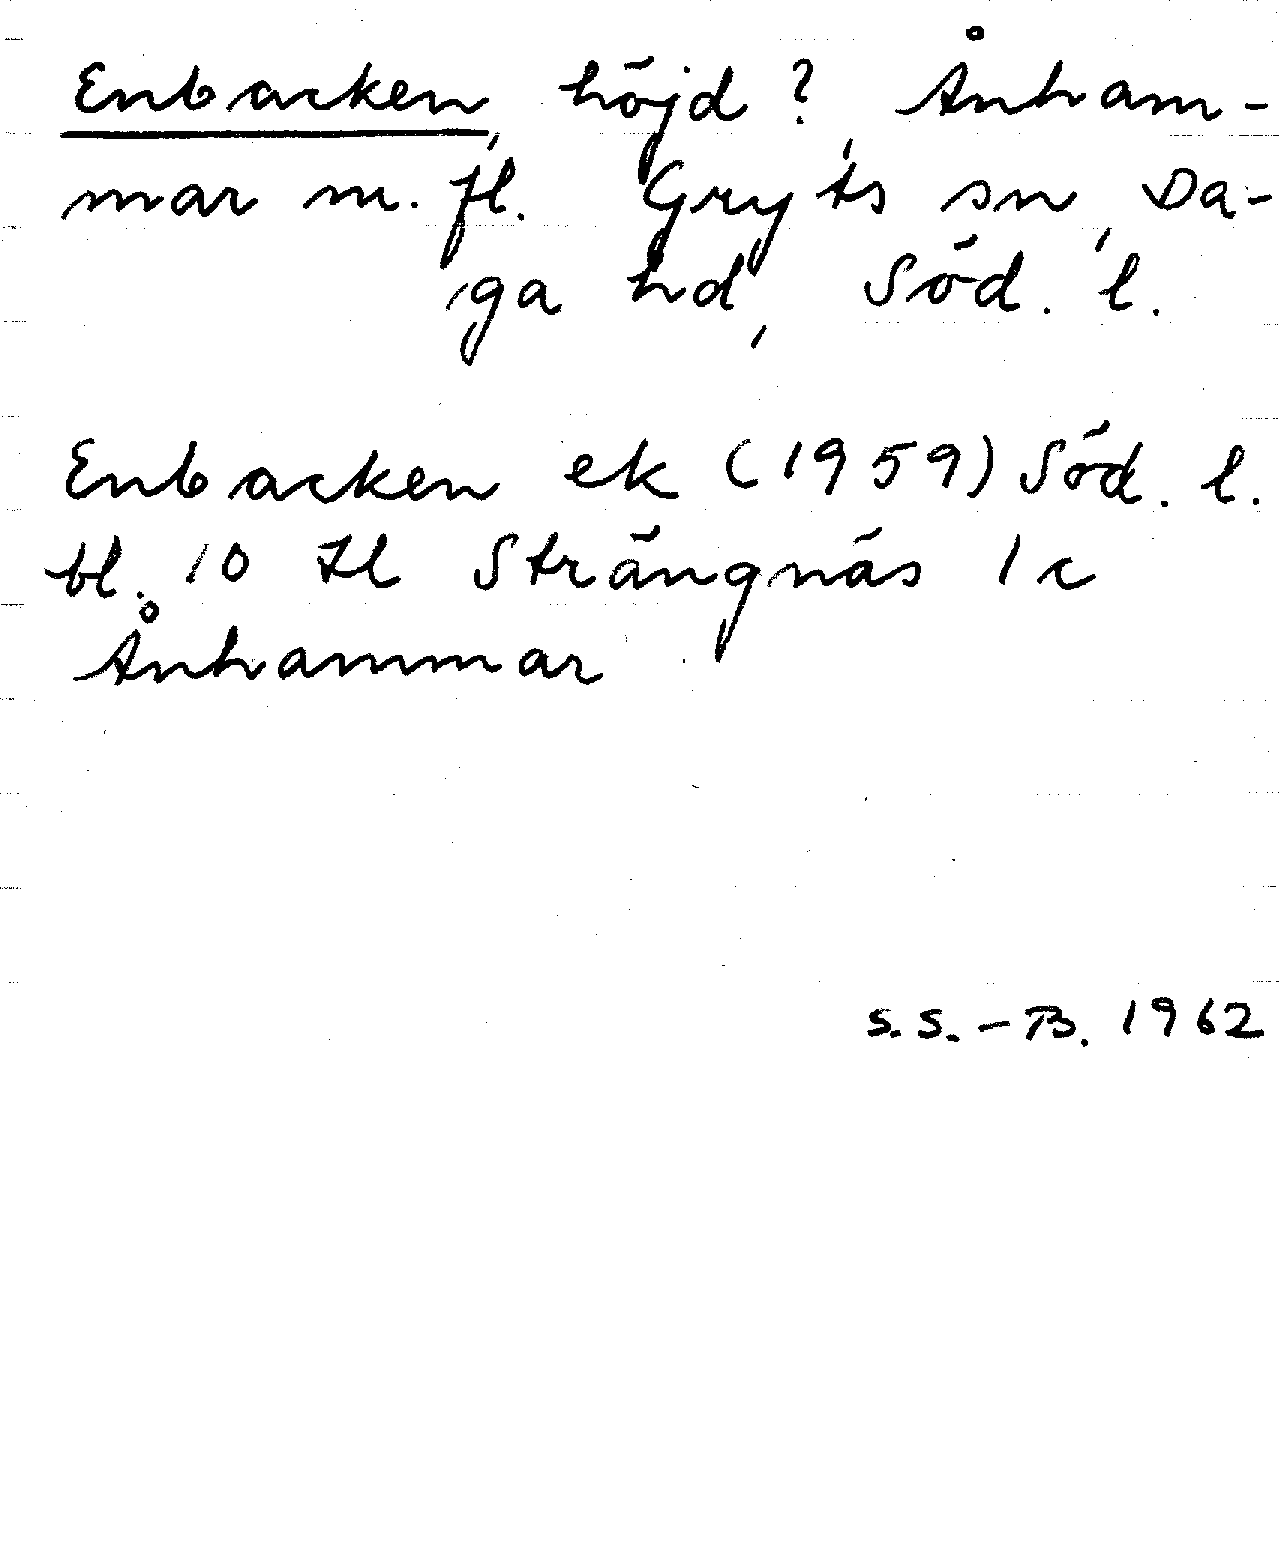 Enbacken, höjd?, Ånham-
mar m. fl. Gryts sn, Da-
ga hd, Söd. l.
Enbacken ek (1959) Söd. l.
bl. 10 Hl Strängnäs 1 c
Ånhammar
S.S.-B. 1962